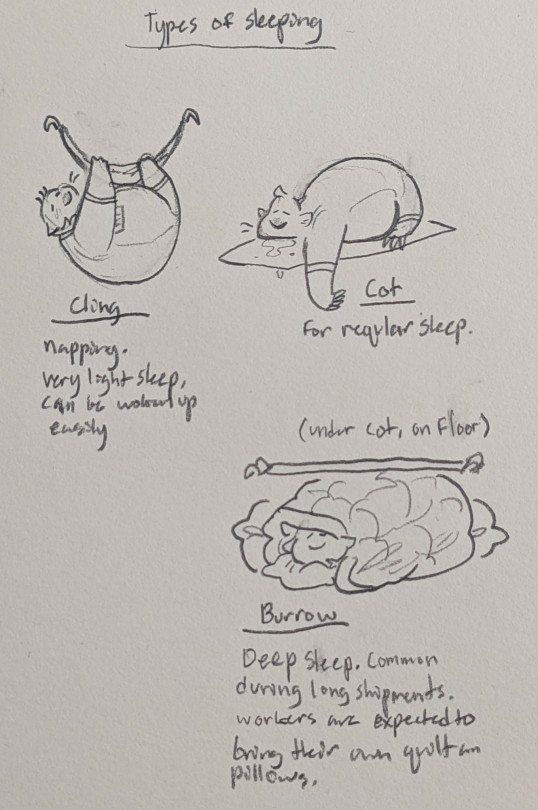 Types of sleeping
Cling
napping.
very light sleep,
can be woken up
easily
Cot
For regular sleep.
(under cot, on floor)
Burrow
Deep sleep. Common
during long shipments.
workers are expected to
bring their own quilt an
pillows.